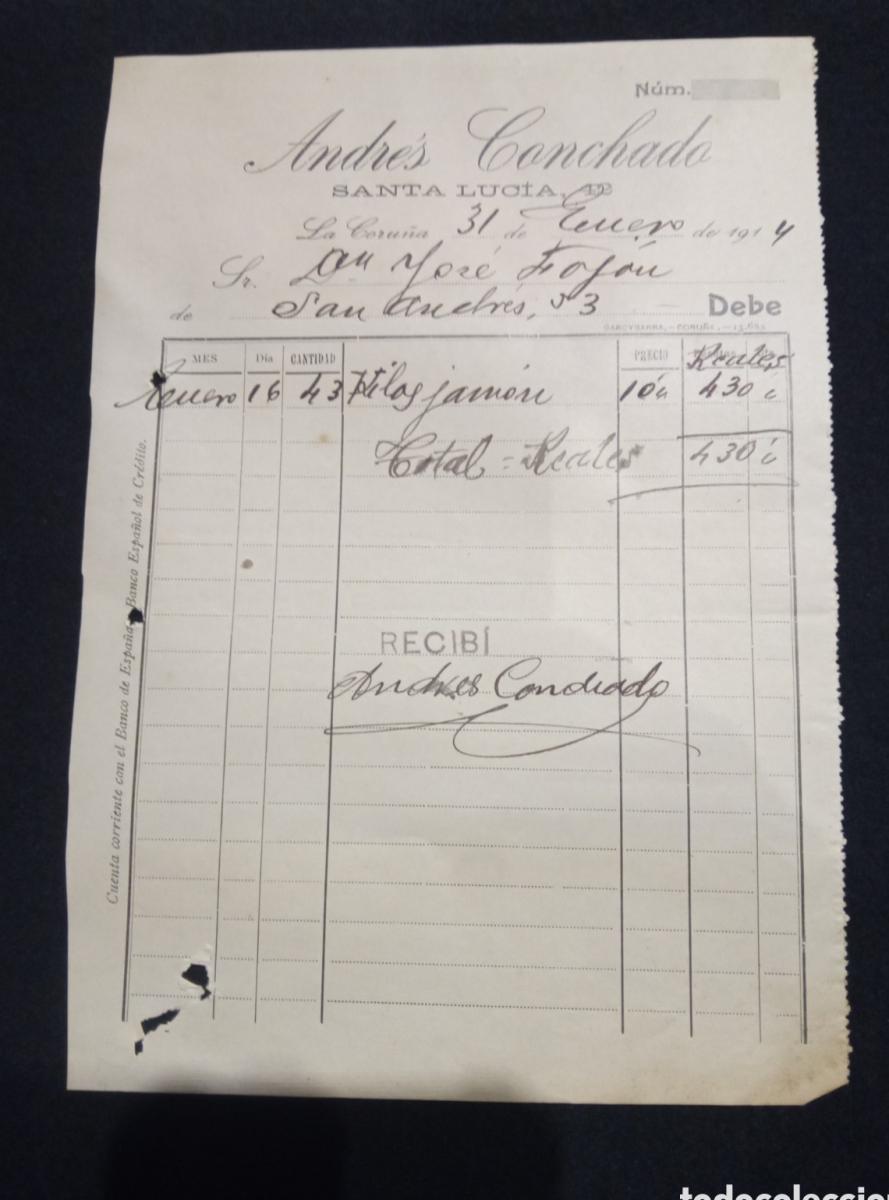 Núm.
Andrés Conchado
SANTA LUCÍA, 42
La Coruña 31 de Enero de 1914
Sr. Dn José Fojón
de San Andrés, 53 Debe
GARCYBARRA.-CORUÑA.
MES Día CANTIDAD PRECIO Reales
Enero 16 43 Kilos jamón 10 430
Total = Reales 430
RECIBÍ
Andres Conchado
Cuenta corriente con el Banco de España, Banco Español de Crédito.
todocoleccion